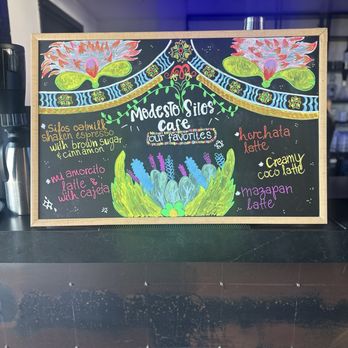 Modesto Silos
Cafe
OUR FAVORITES
Silos oatmilk
shaken espresso
with brown sugar
& cinnamon
mi amorcito
latte
with cajeta
horchata
latte
Creamy
coco latte
mazapan
latte